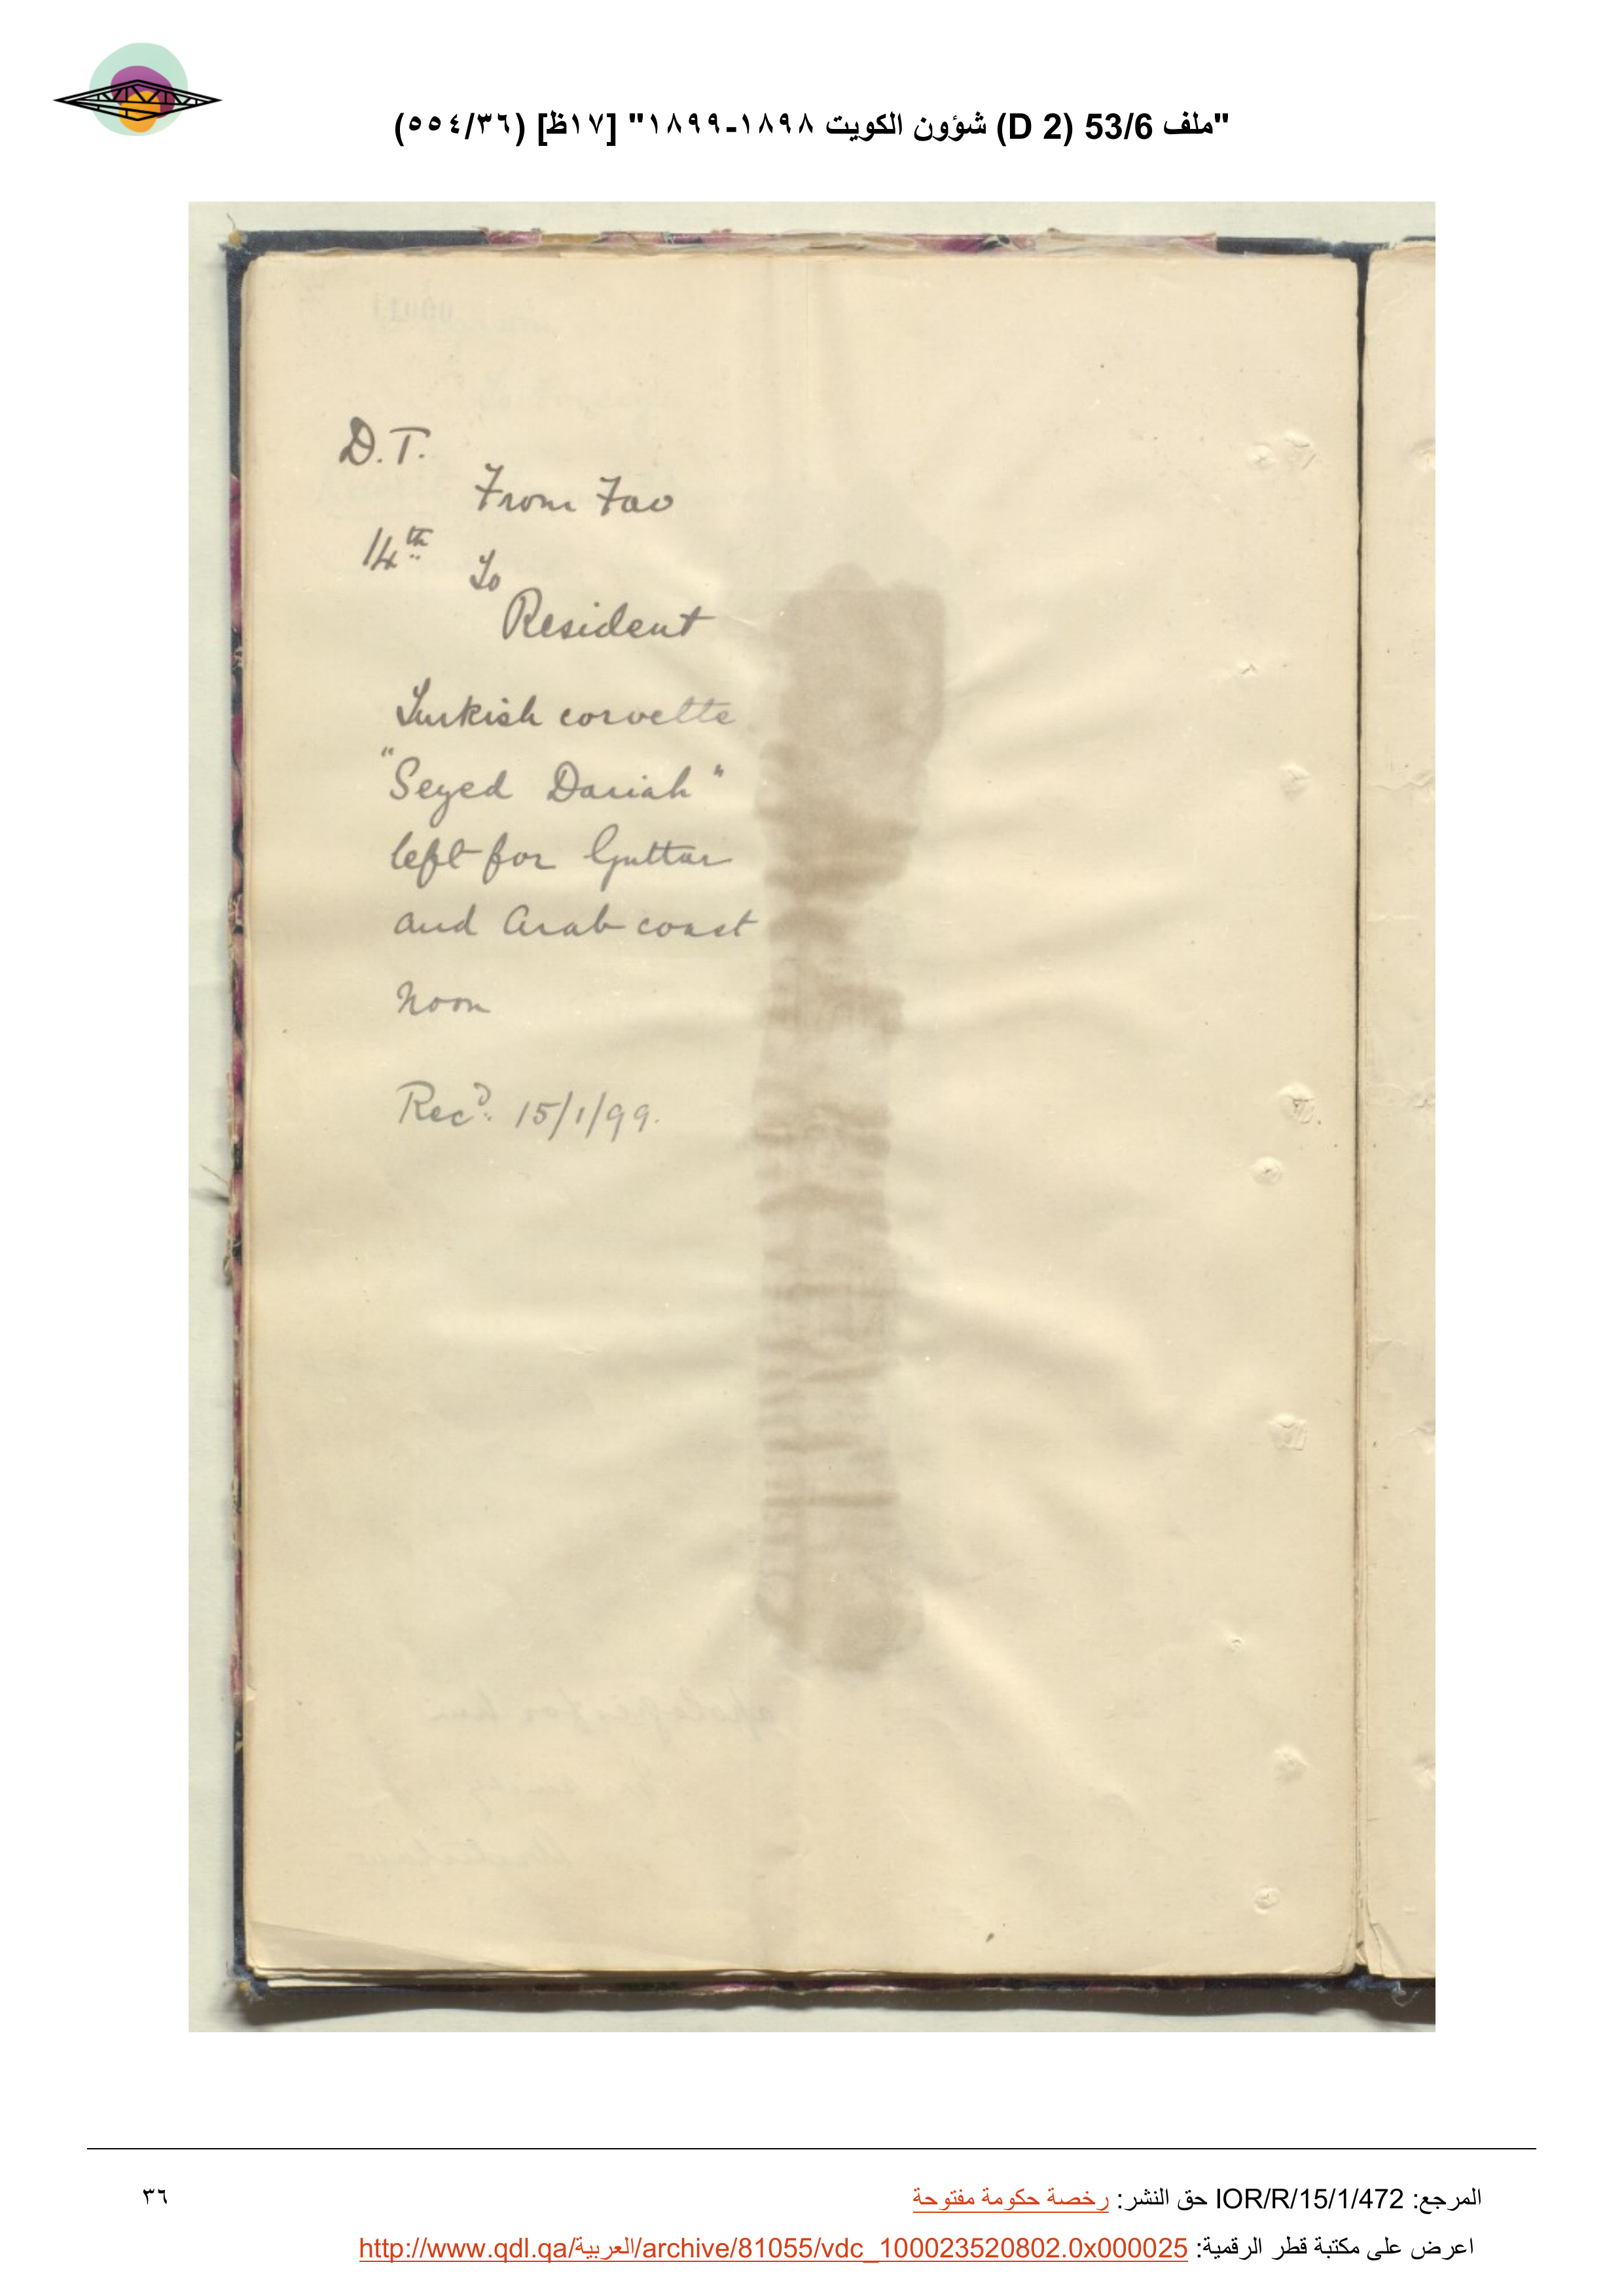 "ملف 53/6 (D 2) شؤون الكويت ١٨٩٨-١٨٩٩" [١٧ظ] (٥٥٤/٣٦)
D.T.
From Fao
14th
To
Resident
Turkish corvette
"Seyed Dariah"
left for Guttar
and Arab coast
Noon
Recd. 15/1/99.
المرجع: IOR/R/15/1/472 حق النشر: رخصة حكومة مفتوحة
٣٦
اعرض على مكتبة قطر الرقمية: http://www.qdl.qa/العربية/archive/81055/vdc_100023520802.0x000025